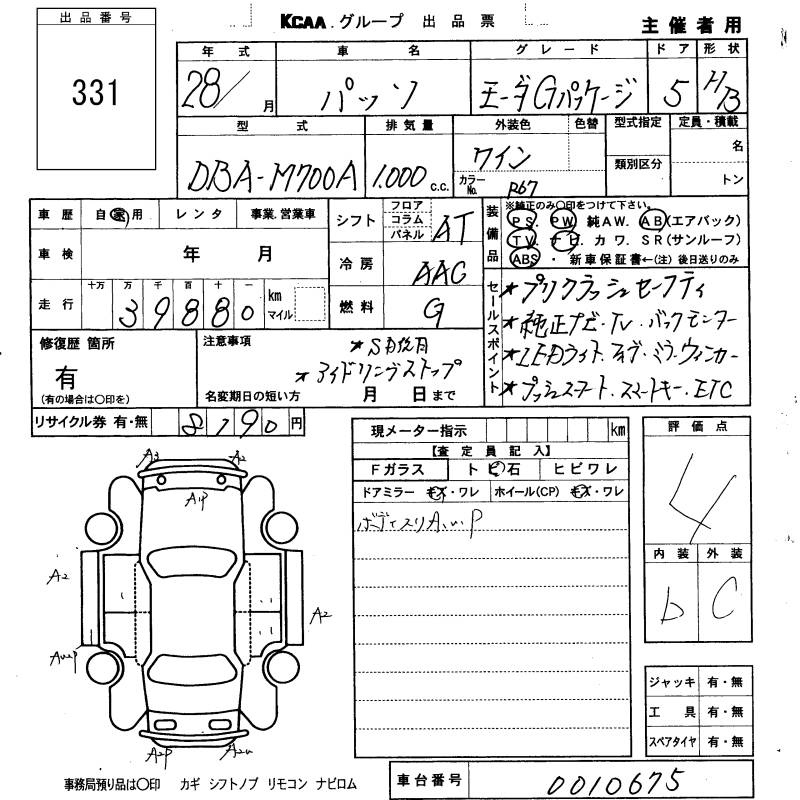 出品番号
331
KCAA.グループ 出品票
主催者用
年式 車名 グレード ドア 形状
28/ 月 パッソ モーダGパッケージ 5 H/B
型式 排気量 外装色 色替 型式指定 定員・積載
DBA-M700A 1.000 c.c. ワイン 名
カラーNo. R67 類別区分 トン
車歴 自家用 レンタ 事業.営業車
シフト フロア コラム パネル AT
装備品 ※純正のみ○印をつけて下さい。
PS. PW 純AW. AB(エアバック)
TV. ナビ. カワ. SR(サンルーフ)
ABS ・ 新車保証書←(注)後日送りのみ
車検 年 月
冷房 AAC
走行 十万 万 千 百 十 一
39880 km マイル
燃料 G
セールスポイント
★プリクラッシュセーフティ
★純正ナビ・TV・バックモニター
★LEDライト.
ミラーウィンカー
★プッシュスタート.スマートキー.ETC
修復歴 箇所
有
(有の場合は○印を)
注意事項
★SD後日
★アイドリングストップ
名変期日の短い方 月 日まで
リサイクル券 有・無 8190円
現メーター指示 km
【査定員記入】
Fガラス トビ石 ヒビワレ
ドアミラー キズ・ワレ ホイール(CP) キズ・ワレ
評価点
4
内装 外装
b C
A3 A2
A1P
A2
A2
A2P A2u
ジャッキ 有・無
工具 有・無
スペアタイヤ 有・無
事務局預り品は○印 カギ シフトノブ リモコン ナビロム
車台番号 0010675